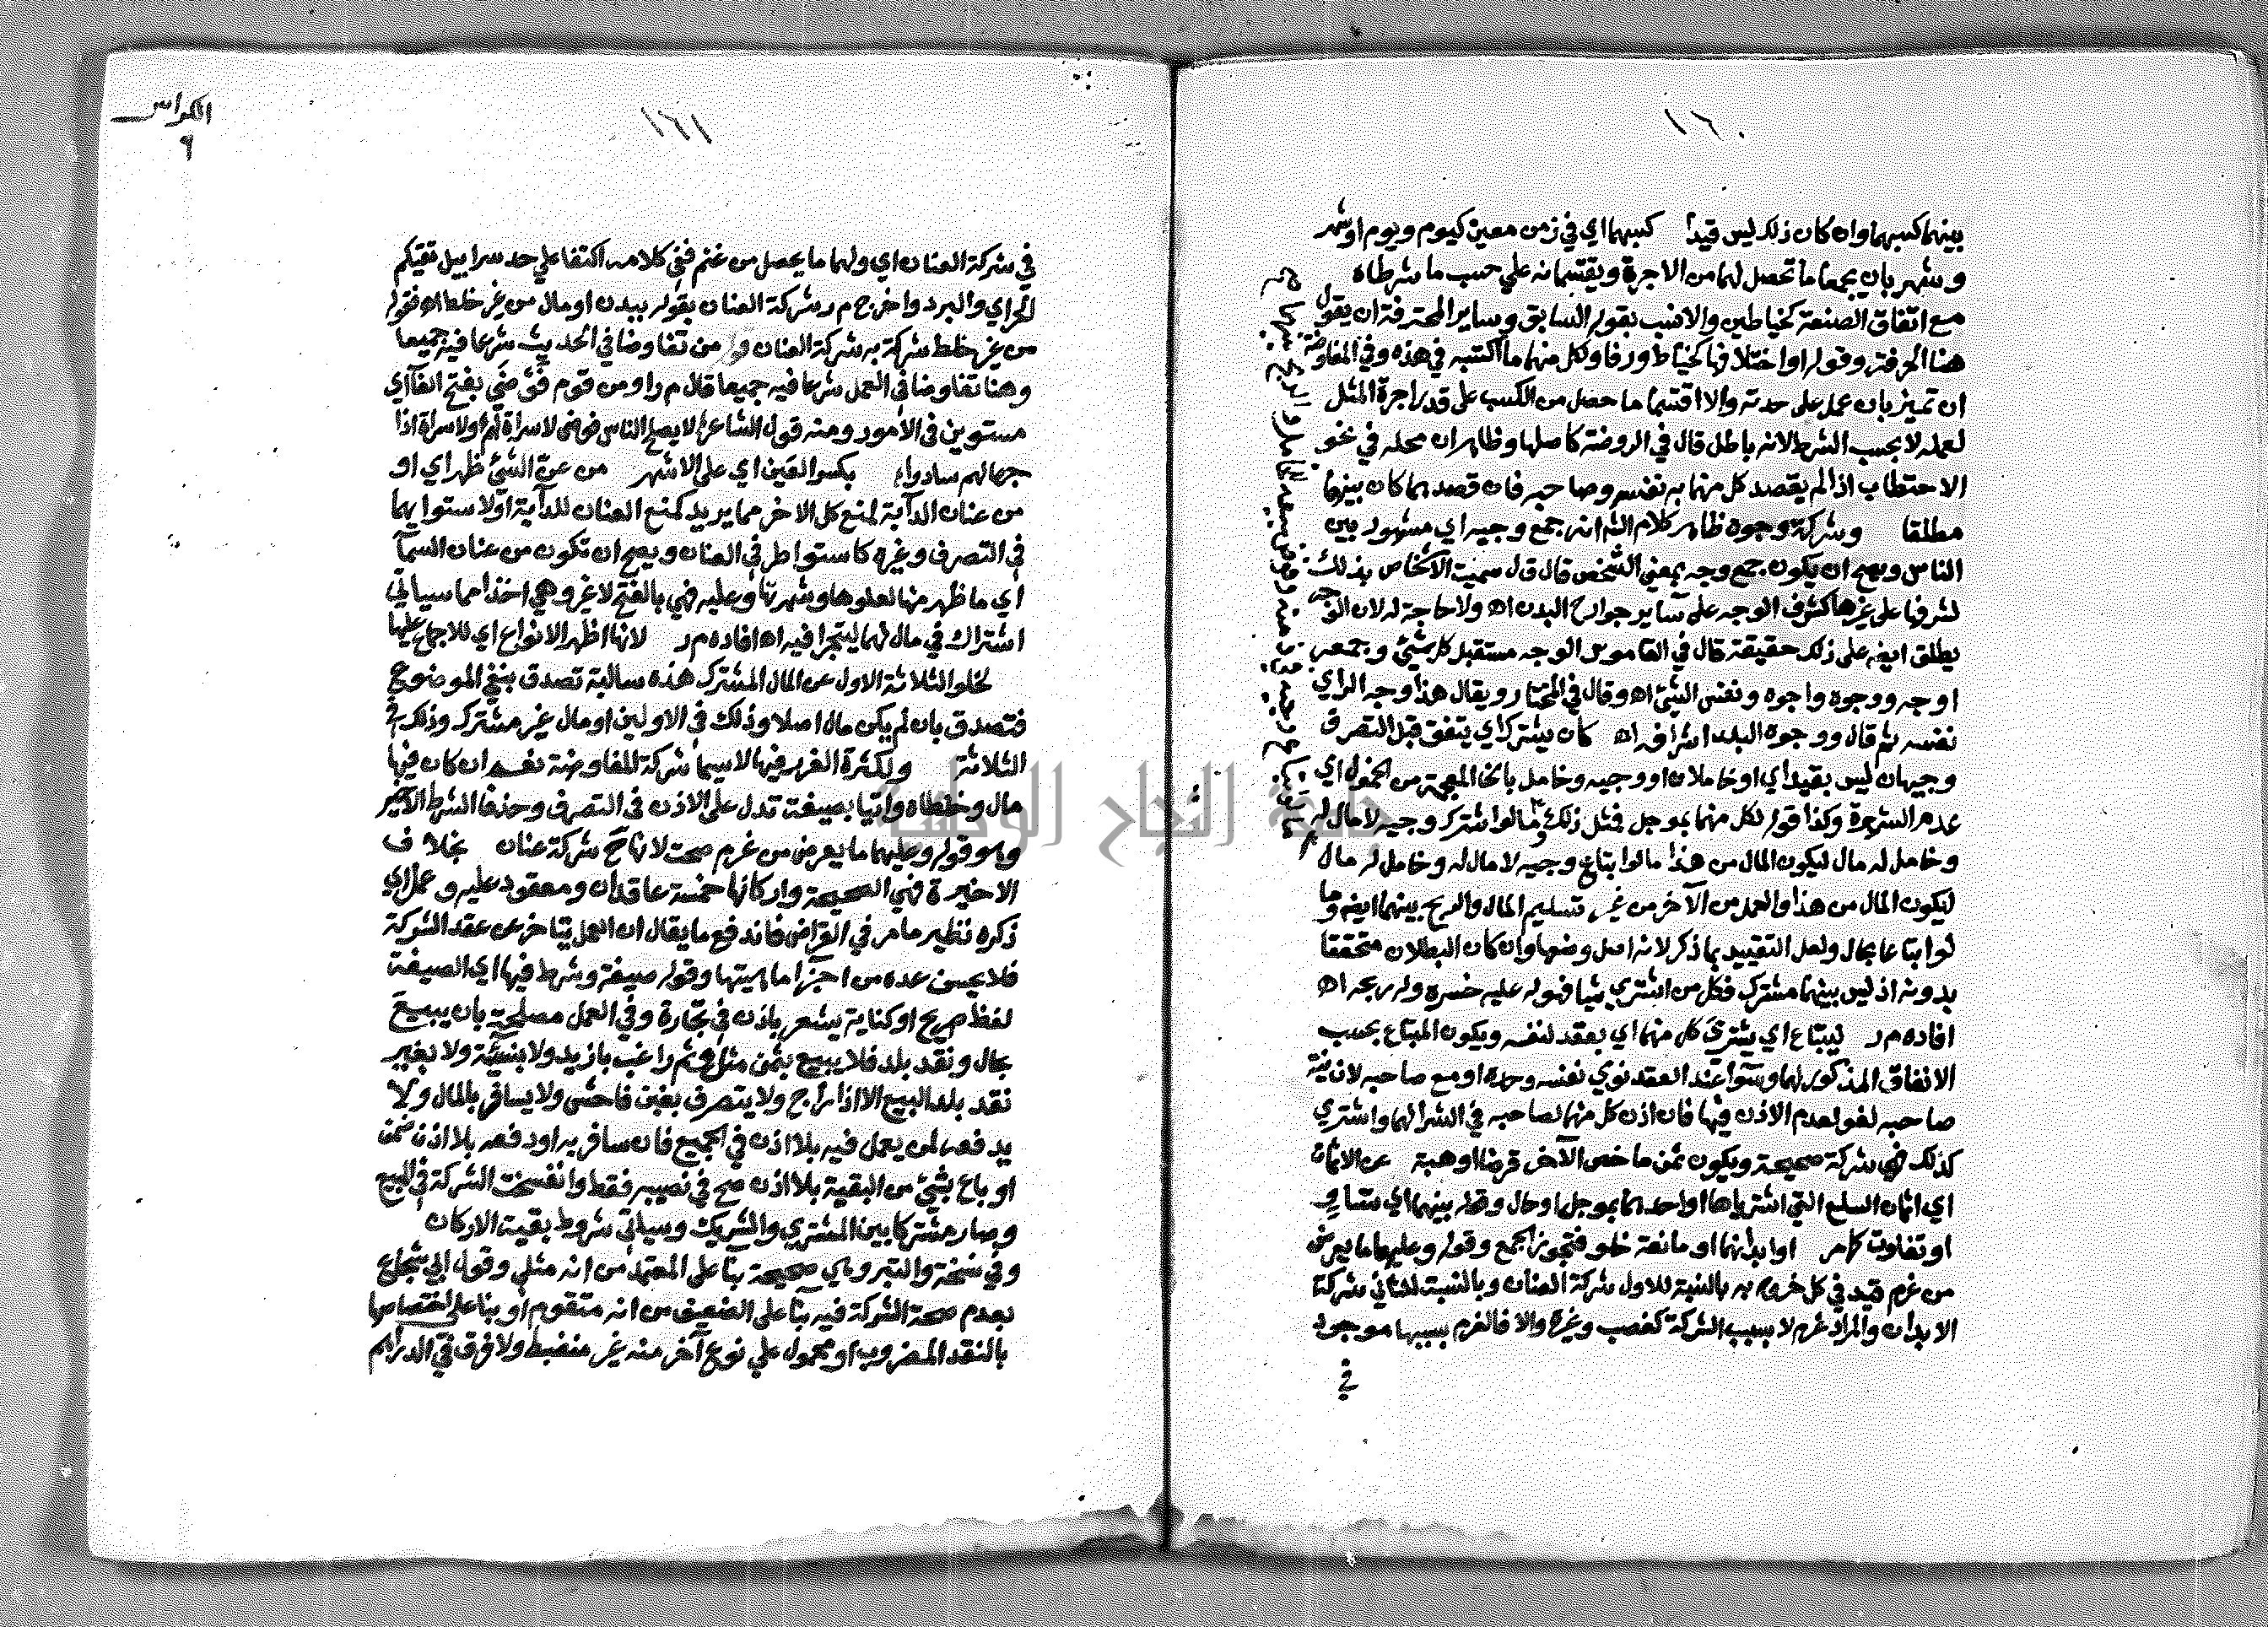 ١٦٠
بينهما كسبهما وان كان ذلك ليس قيدا كسبهما اي في زمن معين كيوم ويوم او شهر
وشهر بان يجمعا ما تحصل لهما من الاجرة ويقتسمانه علي حسب ما شرطاه
مع اتفاق الصنعة كخياطين والانسب بقوله السابق وساير المحترفة ان يقول
هنا الحرفة وقوله او اختلافها كخياط ورفا ولكل منهما ما اكتسبه في هذه وفي المفاوضة
ان تميز بان عمل علي حدته والا اقتسما ما حصل من الكسب علي قدر اجرة المثل
لعمله لا بحسب الشرط لانه باطل قال في الروضة كاصلها وظاهر ان محله في نحو
الاحتطاب اذا لم يقصد كل منهما به نفسه وصاحبه فان قصد بها كان بينهما
مطلقا وشركة وجوه ظاهر كلام الشم انه جمع وجيه اي مشهور بين
الناس ويصح ان يكون جمع وجه بمعني الشخص قال ق ل سميت الاشخاص بذلك
لشرفها على غيرها كشرف الوجه على ساير جوارح البدن اه ولا حاجة له لان الوجه
يطلق ايضا على ذلك حقيقة قال في القاموس الوجه مستقبل كل شيئ وجمعه
اوجه ووجوه واجوه ونفس الشيئ اه وقال في المختار ويقال هذا وجه الراي
نفسه ثم قال ووجوه البلد اشرافه اه كان يشترك اي يتفق قبل التصرف
وجيهان ليس بقيد اي او خاملان او وجيه وخامل بالخا المعجمة من الخمول اي
عدم الشهرة وكذا قوله لكل منهما بموجل فمثل ذلك ما لو اشترك وجيه لا مال له
وخامل له مال ليكون المال من هذا ما لو ابتاع وجيه لا مال له وخامل له مال
ليكون المال من هذا والعمل من الآخر من غير تسليم المال والربح بينهما ايضا وما
لو ابتاعا بحال ولعل التقييد بما ذكر لانه اصل وضعها وان كان البطلان متحققا
بدونه اذ ليس بينهما مشترك فكل من اشتري شيا فهو له عليه خسره وله ربحه اه
افاده م ر ليبتاع اي يشتري كل منهما اي بعقد لنفسه ويكون المبتاع بحسب
الاتفاق المذكور لهما وسوا عند العقد نوي نفسه وحده او مع صاحبه لان نية
صاحبه لغو لعدم الاذن فيها فان اذن كل منهما لصاحبه في الشرا لهما واشتري
كذلك فهي شركة صحيحة ويكون ثمن ما خص الآخر قرضا او هبة عن الاثمان
اي اثمان السلع التي اشترياها او احدهما بموجل او حال وقوله بينهما اي بتساو
او تفاوت كما مر او ابدانهما او مانعة خلو فتجوز الجمع وقوله وعليهما ما يعرض
من غرم قيد في كل خرج به بالنسبة للاول شركة العنان وبالنسبة للثاني شركة
الابدان والمراد غرم لا بسبب الشركة كغصب وغيره والا فالغرم بسببها موجود
في
الكراس
٩
١٦١
في شركة العنان اي ولهما ما يحصل من غنم ففي كلامه اكتفا علي حد سرابيل تقيكم
الحر اي والبرد واخرج م ر شركة العنان بقوله ببدن او مال من غير خلط اه فقوله
من غير خلط شركة به شركة العنان من تفاوضا في الحديث شرعا فيه جميعا
وهنا تفاوضا في العمل شرعا فيه جميعا قال م ر او من قوم فوضي بفتح الفآ اي
مستوين في الأمور ومنه قول الشاعر لا يصلح الناس فوضى لا سراة لهم ولا سراة اذا
جهالهم سادوا بكسر العين اي على الاشهر من عن الشئ ظهر اي او
من عنان الدآبة لمنع كل الاخر مما يريد كمنع العنان للدآبة او لاستوايهما
في التصرف وغيره كاستوا طرفي العنان ويصح ان تكون من عنان السمآ
اي ما ظهر منها لعلوها وشهرتها وعليه فهي بالفتح لا غير وهي اخذا مما سياتي
اشتراك في مال لهما ليتجرا فيه اه افاده م ر لانها اظهر الانواع اي للاجماع عليها
لخلو الثلاثة الاول عن المال المشترك هذه سالبة تصدق بنفي الموضوع
فتصدق بان لم يكن مال اصلا وذلك في الاولين او مال غير مشترك وذلك في
الثلاثة ولكثرة الغرر فيها لا سيما شركة المفاوضة نعم ان كان فيها
مال وخلطاه واتيا بصيغة تدل على الاذن في التصرف وحذفا الشرط الاخير
وهو قوله وعليهما ما يعرض من غرم صحت لانها ح شركة عنان بخلاف
الاخيرة فهي الصحيحة واركانها خمسة عاقدان ومعقود عليه وعمل اي
ذكره نظير ما مر في القراض فاندفع ما يقال ان العمل يتاخر عن عقد الشركة
فلا يحسن عده من اجزا ماهيتها وقوله صيغة وشرط فيها اي الصيغة
لفظ صريح او كناية يشعر باذن في تجارة وفي العمل مصلحة بان يبيع
بحال ونقد بلد فلا يبيع بثمن مثل وثم راغب بازيد ولا بنسيئة ولا بغير
نقد بلد البيع الا اذا راج ولا يتصرف بغبن فاحش ولا يسافر بالمال ولا
يدفعه لمن يعمل فيه بلا اذن في الجميع فان سافر به او دفعه بلا اذن ضمن
او باع بشئ من البقية بلا اذن صح في نصيبه فقط وانفسخت الشركة في المبيع
وصار مشتركا بين المشتري والشريك وسياتي شروط بقية الاركان
وفي نسخة والتبر وهي صحيحة بنا على المعتمد من انه مثلي وقول ابي شجاع
بعدم صحة الشركة فيه بنآ على الضعيف من انه متقوم او بنا على اختصاصها
بالنقد المضروب او محمول علي نوع آخر منه غير منضبط ولا فرق في الدراهم
جامعة النجاح الوطنية